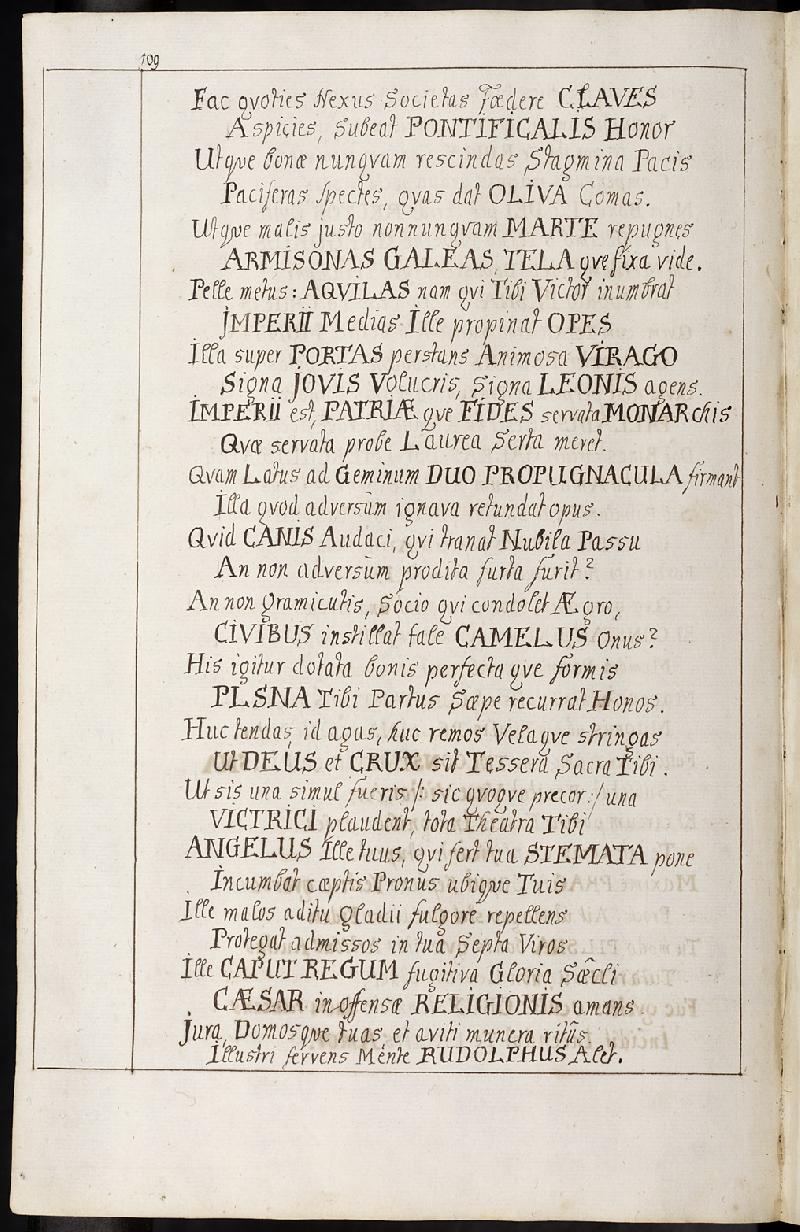 109
Fac qvoties Nexus Societas fœdere CLAVES
Aspicies, Subeat PONTIFICALIS Honor
Utqve bonæ nunqvam rescindas Stagmina Pacis
Paciferas spectes, qvas dat OLIVA Comas.
Utqve malis justo nonnunqvam MARTE repugnes
ARMISONAS GALEAS, TELA qve fixa vide.
Pelle metus: AQVILAS nam qvi Tibi Victor inumbrat
IMPERII Medias Ille propinat OPES
Illa super PORTAS perstans Animosa VIRAGO
Signa JOVIS Volucris, Signa LEONIS agens.
IMPERII est, PATRIÆ qve FIDES servata MONARchis
Qvæ servata probe Laurea Serta meret.
Qvam Latus ad Geminum DUO PROPUGNACULA firmant
Illa qvod adversum ignava retundat opus.
Qvid CANIS Audaci, qvi tranat Nubila Passu
An non adversum prodita furta furit?
An non gramicutis, Socio qvi condolet Ægro,
CIVIBUS instillat fale CAMELUS Onus?
His igitur dotata bonis perfecta qve formis
PLSNA Tibi Partus Sæpe recurrat Honos.
Huc tendas, id agas, huc remos Velaqve stringas
Ut DEUS et CRUX sit Tessera Sacra Tibi.
Ut sis una simul fueris /: sic qvoqve precor :/ una
VICTRICI plaudent, tota Theatra Tibi
ANGELUS Ille tuus, qvi fert tua STEMATA pone
Incumbat cœptis Pronus ubiqve Tuis
Ille malos aditu Gladii fulgore repellens
Protegat admissos in tua Septa Viros
Ille CAPUT REGUM fugitiva Gloria Sæcli
CÆSAR inoffensæ RELIGIONIS amans
Jura, Domosqve tuas, et aviti munera ritûs
Illustri fervens Mente RUDOLPHUS Alet.